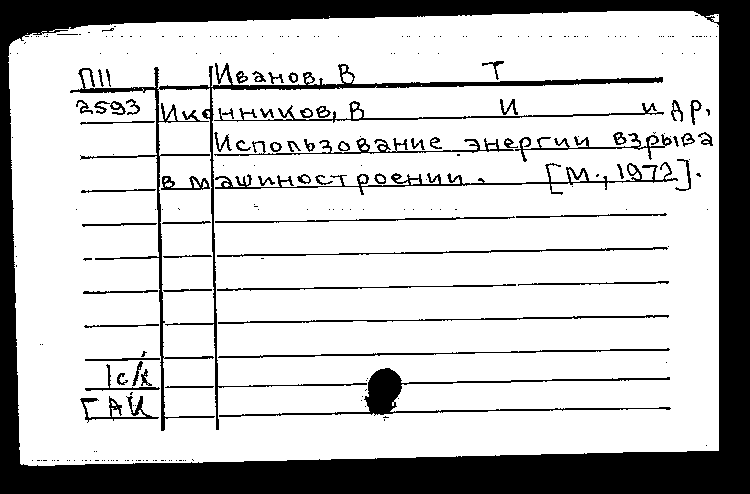 ПII Иванов, В Т
2593 Иконников, В И и др.
Использование энергии взрыва
в машиностроении. [М., 1972].
1с/х
ГАК